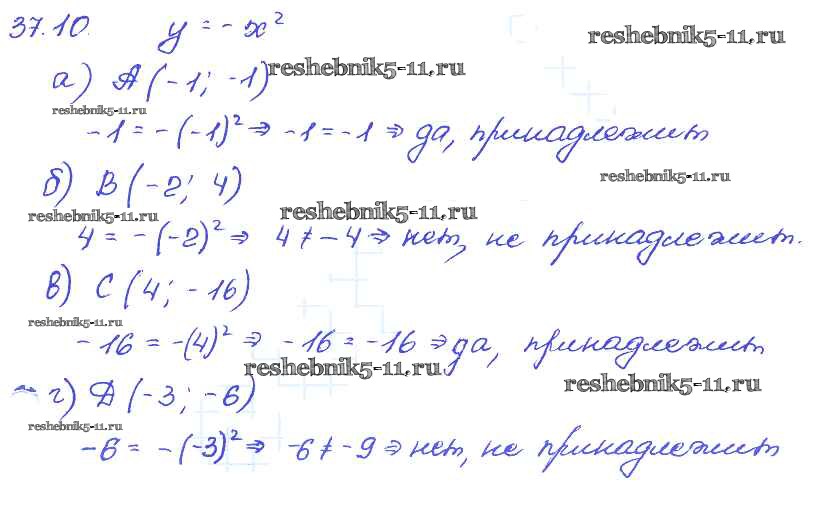 37.10. y = - x²
reshebnik5-11.ru
а) A (-1; -1)
reshebnik5-11.ru
reshebnik5-11.ru
-1 = - (-1)² ⇒ -1 = -1 ⇒ да, принадлежит
б) B (-2; 4)
reshebnik5-11.ru
reshebnik5-11.ru
reshebnik5-11.ru
4 = - (-2)² ⇒ 4 ≠ - 4 ⇒ нет, не принадлежит.
в) C (4; -16)
reshebnik5-11.ru
-16 = -(4)² ⇒ -16 = -16 ⇒ да, принадлежит
reshebnik5-11.ru
reshebnik5-11.ru
г) D (-3; -6)
reshebnik5-11.ru
-6 = - (-3)² ⇒ -6 ≠ -9 ⇒ нет, не принадлежит